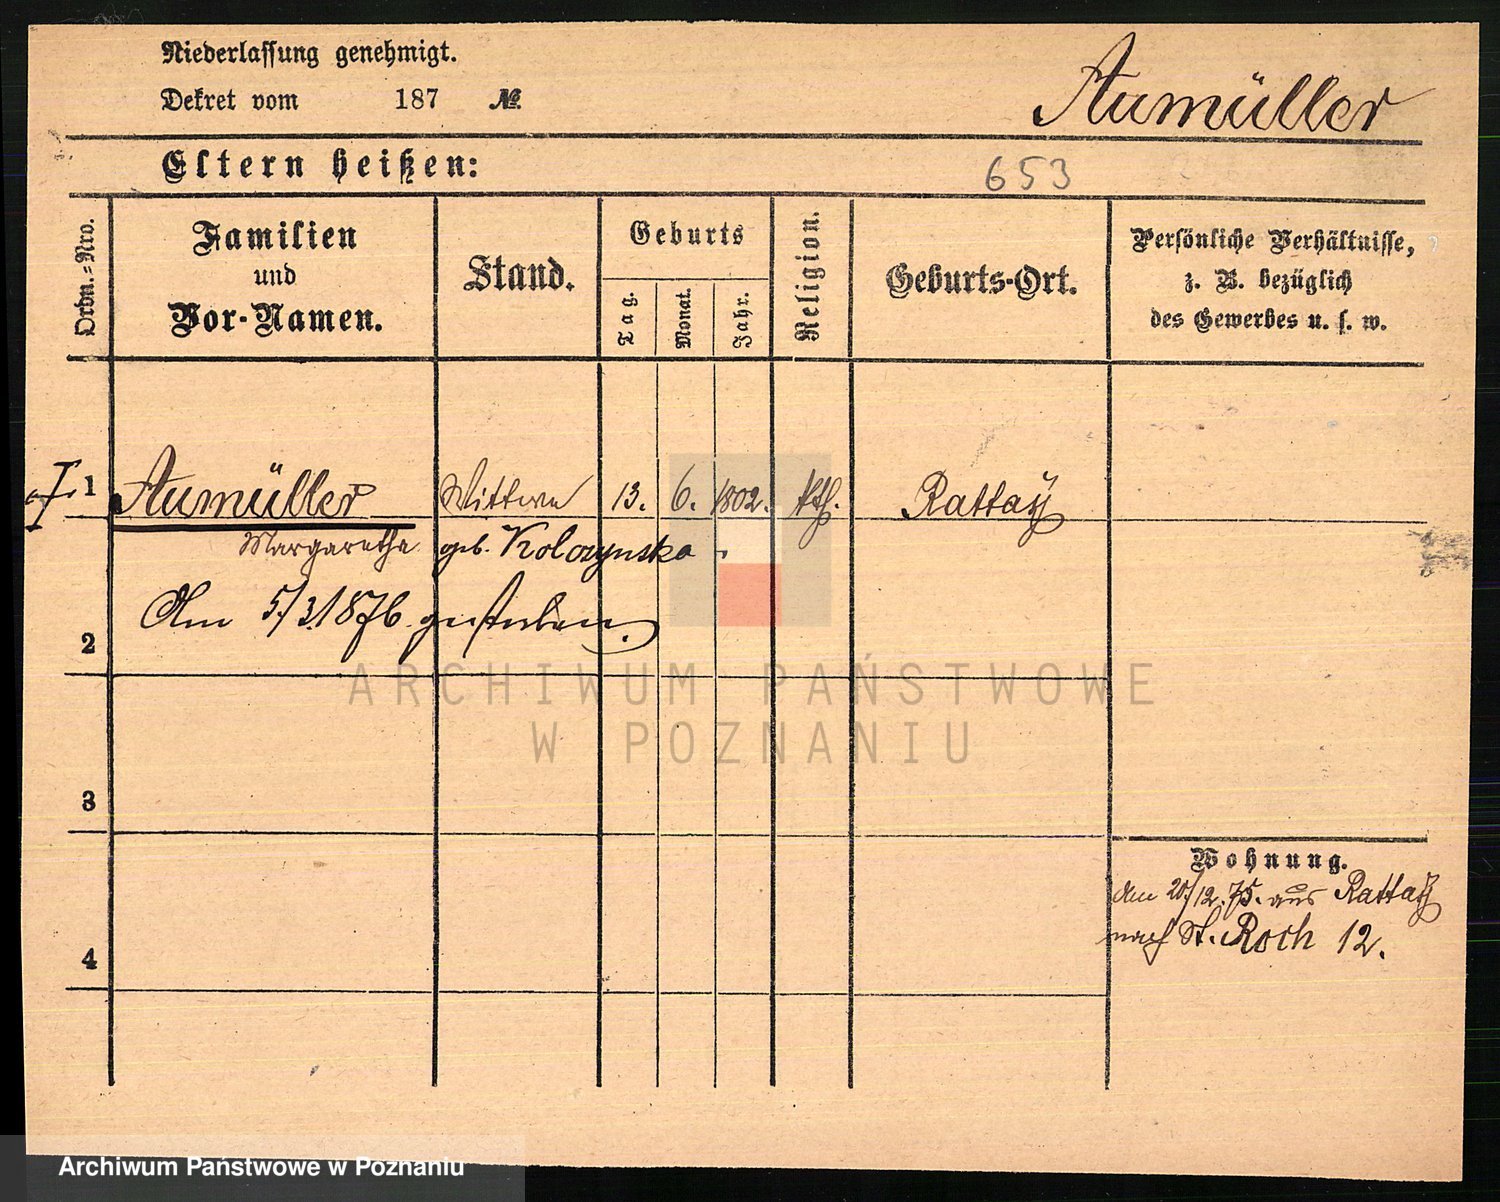 Niederlassung genehmigt.
Dekret vom 187 №
Aumüller
Eltern heißen:
653
Ordn.-Nro.
Familien
und
Vor-Namen.
Stand.
Geburts
Tag.
Monat.
Jahr.
Religion.
Geburts-Ort.
Persönliche Verhältnisse,
z. B. bezüglich
des Gewerbes u. s. w.
1 Aumüller Wittwe 13. 6. 1802. kth. Rattaÿ
Margaretha geb. Kolczynska
Am 5/3.1876. gestorben.
2
ARCHIWUM PAŃSTWOWE
W POZNANIU
3
Wohnung.
Am 20/12.75. aus Rattaÿ
nach St. Roch 12.
4
Archiwum Państwowe w Poznaniu